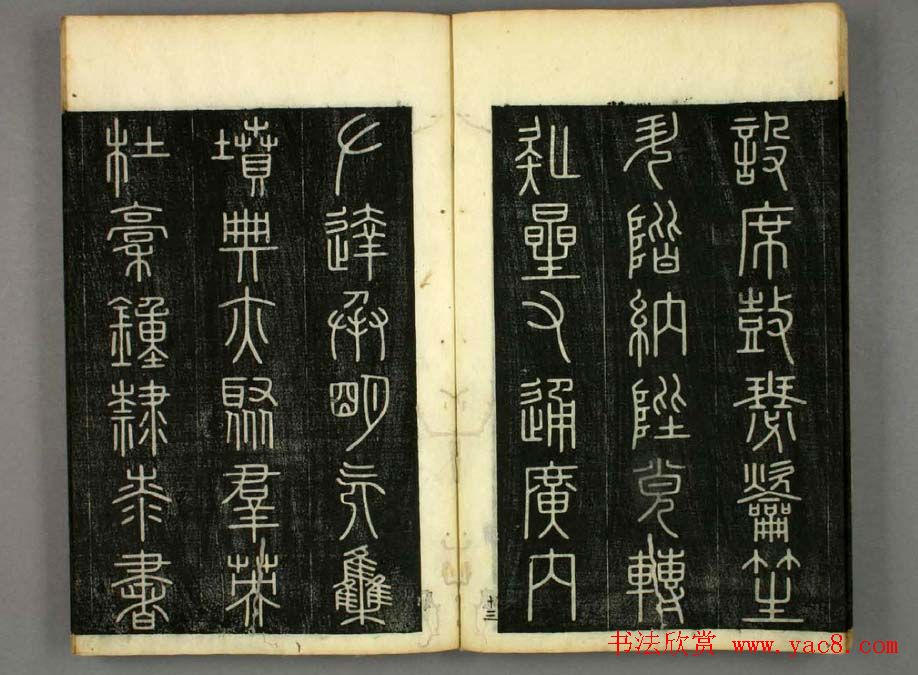 設席鼓瑟龡笙
升階納陛弁轉
疑曐又通廣內
十三
𠂇達承朙既雧
墳典亦聚羣英
杜稾鐘隸桼書
书法欣赏 www.yac8.com